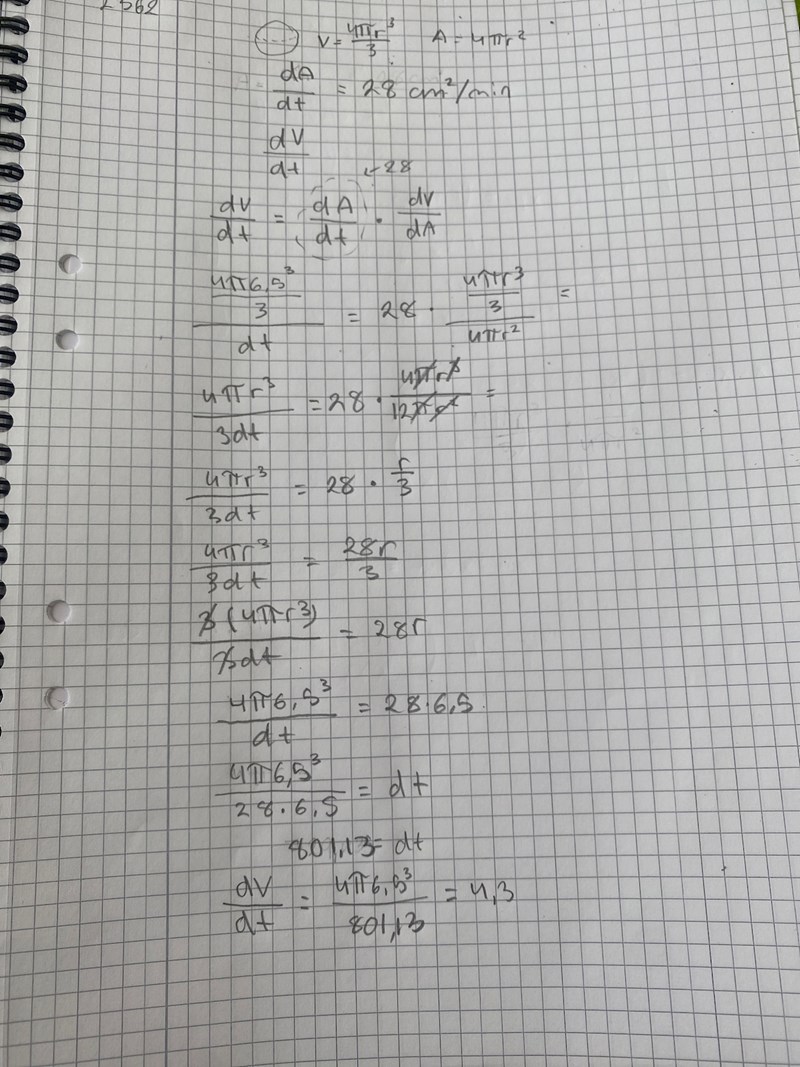 2562
V = 4πr³/3 A = 4πr²
dA/dt = 28 cm²/min
dV/dt
←28
dV/dt = dA/dt · dV/dA
(4π6,5³/3)/dt = 28 · (4πr³/3)/(4πr²) =
4πr³/3dt = 28 · 4πr³/12πr² =
4πr³/3dt = 28 · r/3
4πr³/3dt = 28r/3
3(4πr³)/3dt = 28r
4π6,5³/dt = 28·6,5
4π6,5³/28·6,5 = dt
801,13 = dt
dV/dt = 4π6,5³/801,13 = 4,3